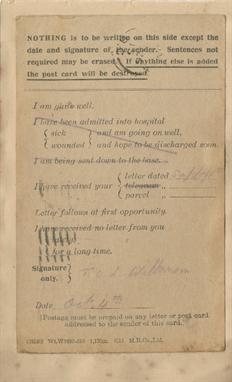 NOTHING is to be written on this side except the
date and signature of the sender. Sentences not
required may be erased. If anything else is added
the post card will be destroyed.
I am quite well.
I have been admitted into hospital
{ sick } and am going on well.
{ wounded } and hope to be discharged soon.
I am being sent down to the base.
I have received your { letter dated
telegram „
parcel „
Letter follows at first opportunity.
I have received no letter from you
for a long time.
Signature
only. }
Date Oct 4th
[Postage must be prepaid on any letter or post card
addressed to the sender of this card.]